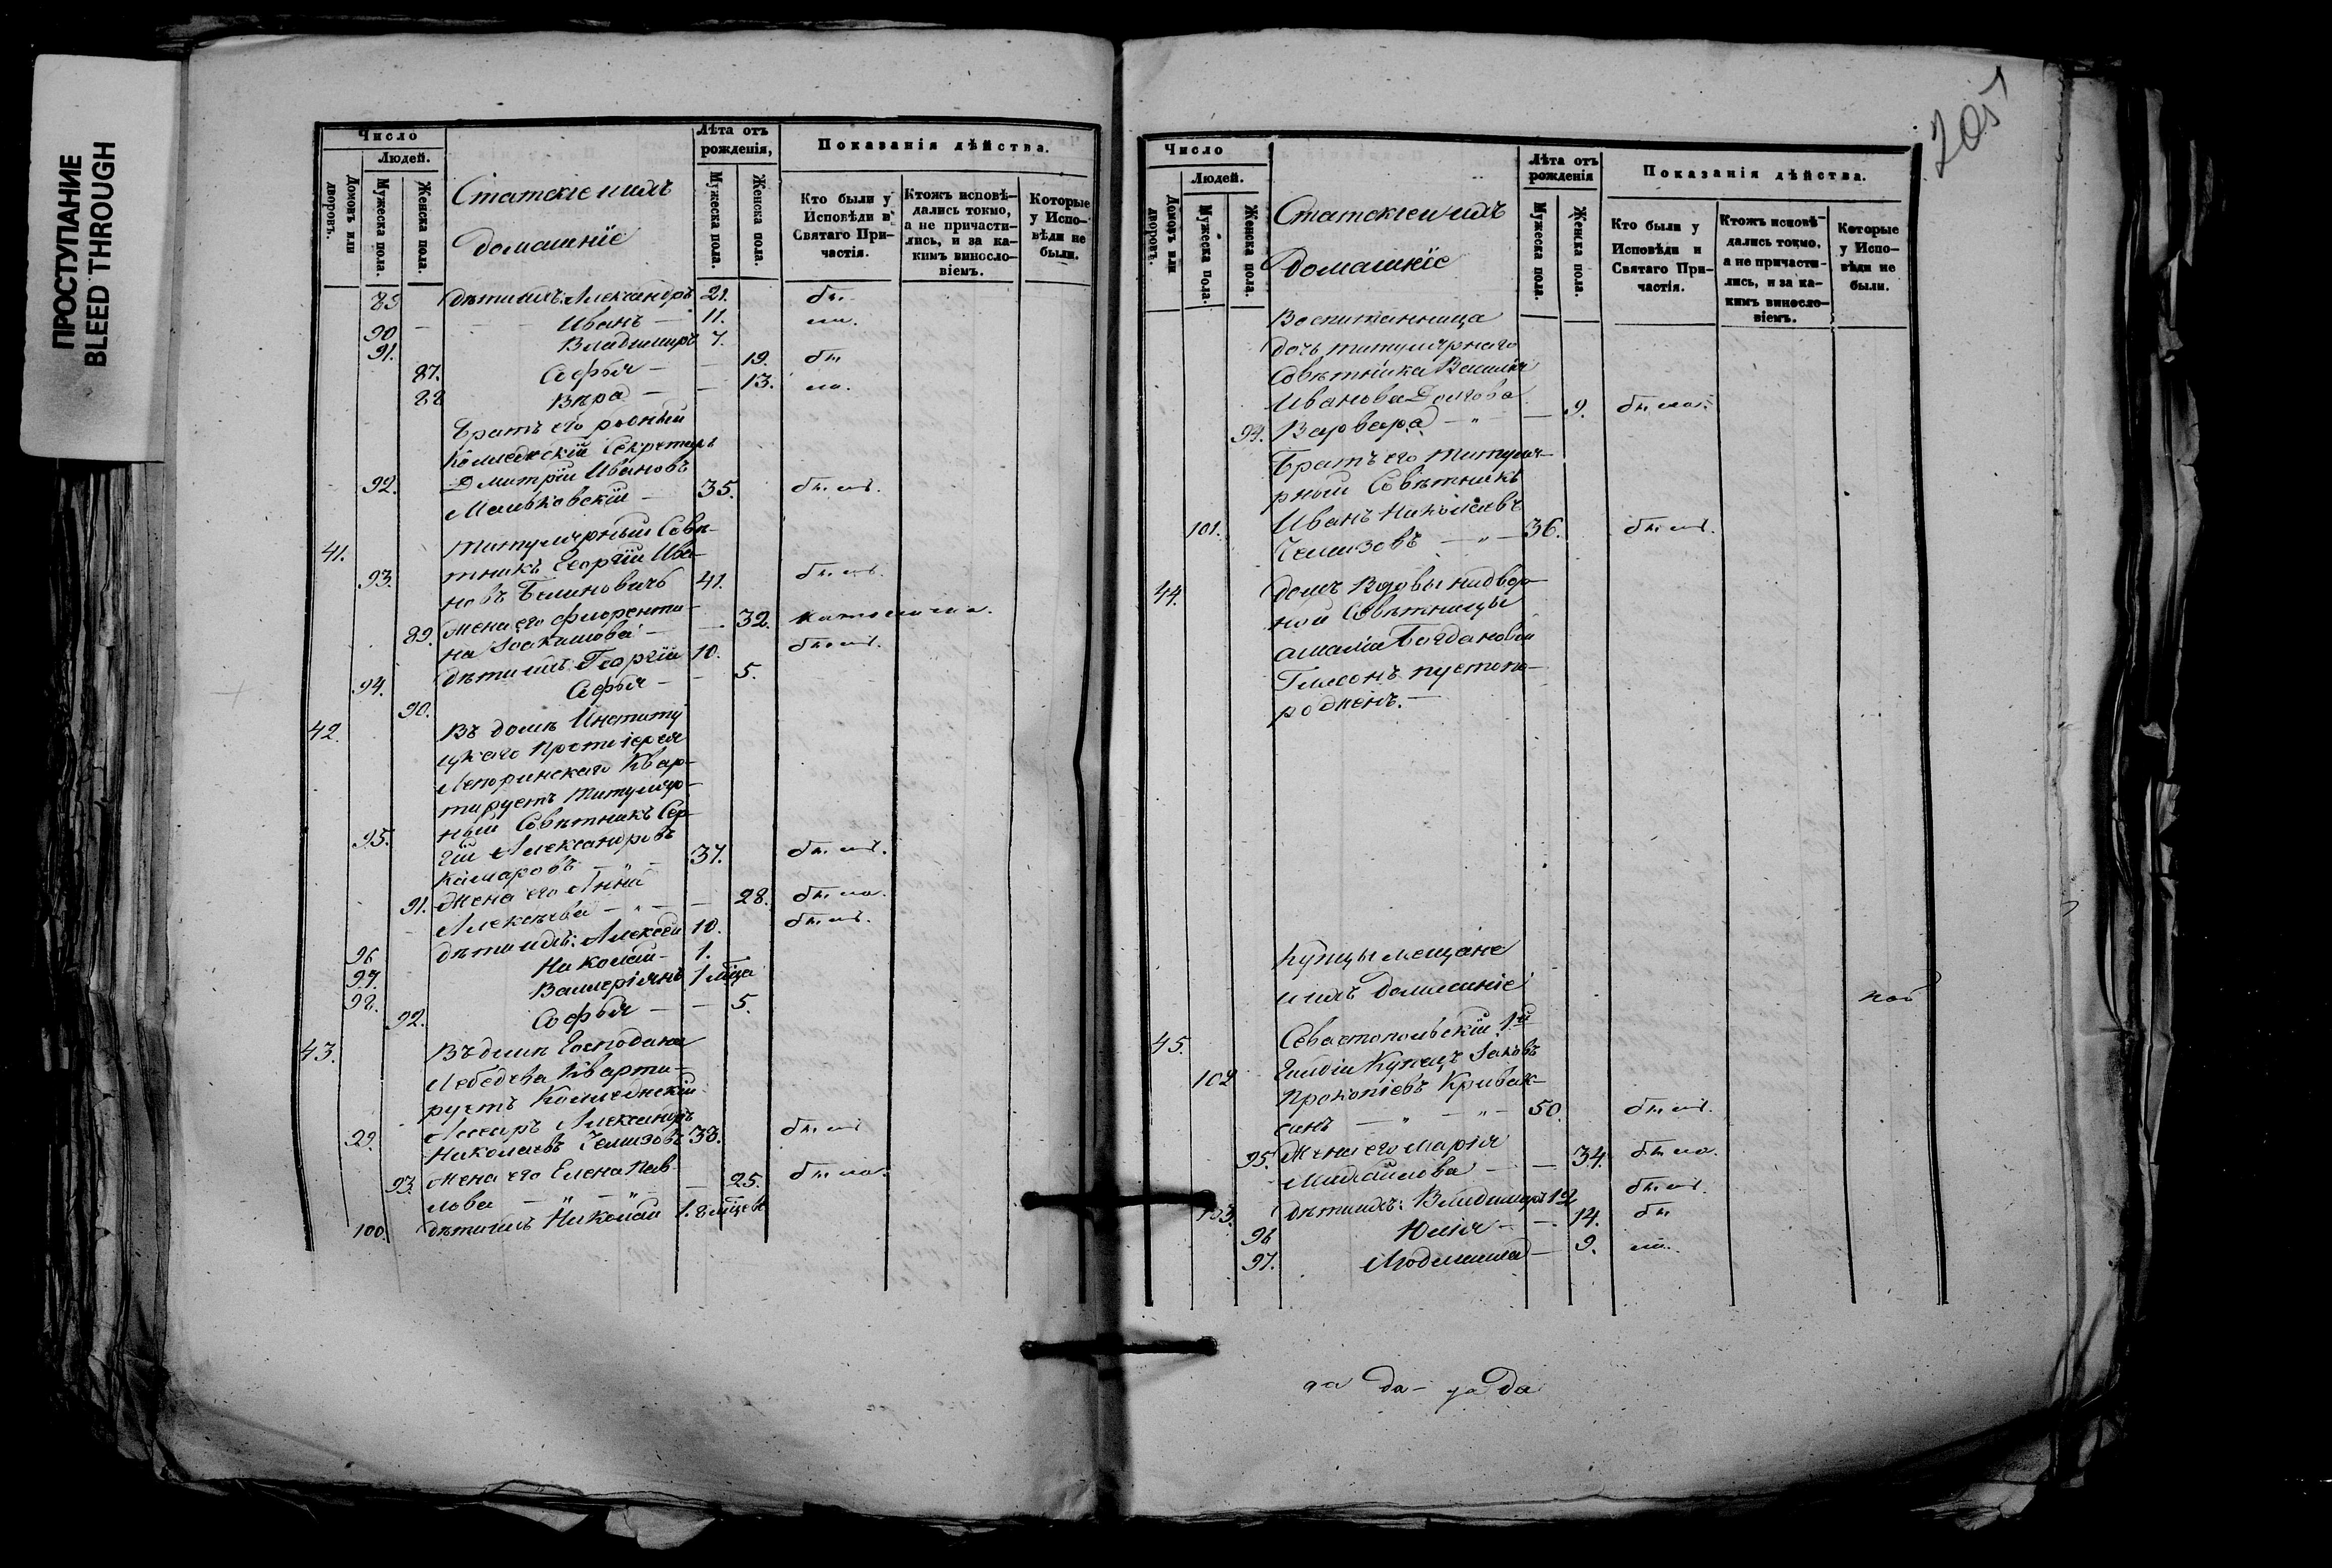 ПРОСТУПАНИЕ
BLEED THROUGH
Число
Людей.
Домовъ или дворовъ.
Мужеска пола.
Женска пола.
Статскіе и ихъ
домашніе
Лѣта отъ рожденія,
Мужеска пола.
Женска пола.
Показанія дѣйства.
Кто были у Исповѣди и Святаго Причастія.
Ктожъ исповѣдались токмо, а не причастились, и за какимъ винословіемъ.
Которые у Исповѣди не были.
89 дѣти ихъ: Александръ 21. бы
90 Иванъ — 11. ли.
91. Владимиръ 7.
87. Софья — — 19. бы
88 Вѣра — — 13. ла.
братъ его родный
Коллежскій Секретарь
92. Дмитрій Ивановъ
35. былъ.
41. Титулярный Совѣ-
93. тникъ Георгій Ива-
новъ 41. былъ.
89. Жена его Флоренти-
на Іоакимова — — 32. католичка.
94. дѣти ихъ Георгій 10. былъ.
90. Софья — — 5.
42. Въ домѣ Институ
цкаго Протоіерея
Лепоринскаго Квар-
тируетъ Титуляр-
95. ный Совѣтникъ Сер-
гій Александровъ
Камаровъ — „ — 37. былъ.
91. Жена его Анна
Алексѣева — „ — — 28. была.
96 дѣти ихъ: Алексѣй 10. былъ.
97. Николай — 1.
98. Валеріянъ 1 мѣца
92. Софья — — 5.
43. Въ домѣ Господина
Лебедева Кварти-
руетъ Коллежскій
99. Ассесоръ Александръ
Николаевъ Челизовъ 33. былъ
93. Жена его Елена Пав-
лова — „ — „ — 25. была.
100. дѣти ихъ Николай 1. 8 мѣцевъ
205
Число
Людей.
Домовъ или дворовъ.
Мужеска пола.
Женска пола.
Статскіе и ихъ
Домашніе
Лѣта отъ рожденія
Мужеска пола.
Женска пола.
Показанія дѣйства.
Кто были у Исповѣди и Святаго Причастія.
Ктожъ исповѣдались токмо, а не причастились, и за какимъ винословіемъ.
Которые у Исповѣди не были.
Воспитанница
дочь титулярнаго
Совѣтника Василія
Иванова Долгова
94. Варвара — „ — 9. была.
Братъ его Титуля-
рный Совѣтникъ
101. Иванъ Николаевъ
Челизовъ — „ — 36. былъ.
44. домъ Вдовы надвор-
ной Совѣтницы
Амаліи Богдановой
пустопо-
рожнень. —
Купцы мещане
и ихъ домашніе
45. Севастопольскій 1й
102 Гилдіи Купецъ Іаковъ
Прокопіевъ Кривак-
синъ — „ — „ — 50. былъ.
95. Жена его Марія
Михайлова — — 34. была.
103. дѣти ихъ: Владимиръ 12 былъ.
96 Юлія — — 14. бы
97. Людмила — 9. ли.